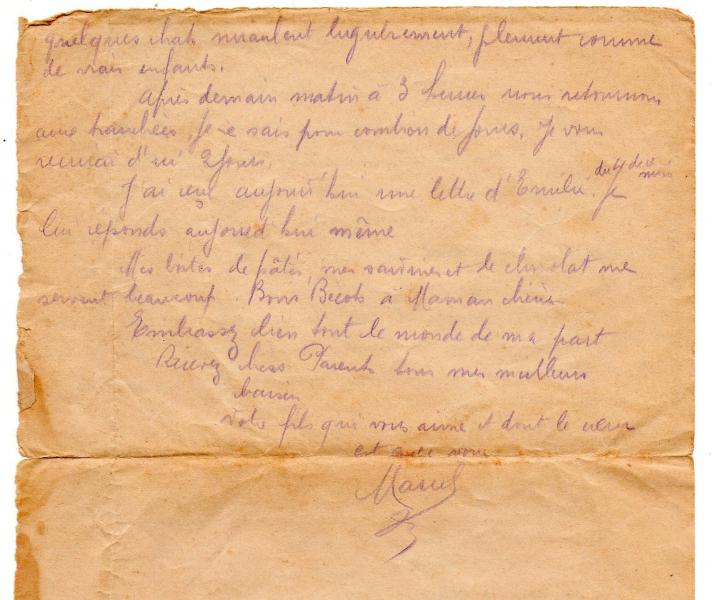 quelques chats miaulent lugubrement, pleurent comme
de vrais enfants.
Après demain matin à 3 heures nous retournons
aux tranchées. Je ne sais pour combien de jours. Je vous
écrirai d'ici 2 jours.
J'ai reçu aujourd'hui une lettre d'Emilie. du 4 de ce mois Je
lui réponds aujourd'hui même
Mes boites de pâtés, mes sardines et de chocolat me
servent beaucoup. Bons Becots à Maman chérie
Embrassez bien tout le monde de ma part
Recevez chers Parents tous mes meilleurs
baisers
Votre fils qui vous aime et dont le cœur
est avec vous
Marcel